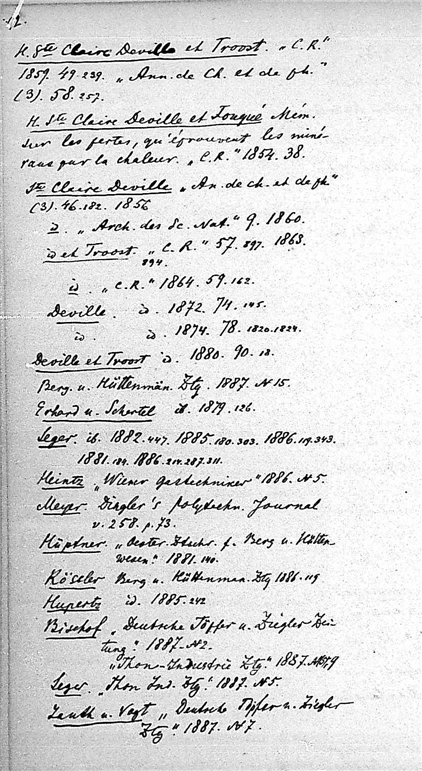 12.
H. Ste Claire Deville et Troost. „C. R."
1859. 49. 239. „Ann. de Ch. et de ph."
(3). 58. 257.
H. Ste Claire Deville et Fouqué Mém.
sur les pertes, qu'éprouvent les miné-
raux par la chaleur. „C. R." 1854. 38.
Ste Claire Deville „An. de ch. et de ph"
(3). 46. 182. 1856
id. „Arch. des Sc. Nat." 9. 1860.
id et Troost. „C. R." 57. 897. 1863.
894.
id. „C. R." 1864. 59. 162.
Deville. id. 1872. 74. 145.
id. id. 1874. 78. 1820. 1824.
Deville et Troost id. 1880. 90. 18.
Berg. u. Hüttenmän. Ztg. 1887. N 15.
Erhard u. Schertel ib. 1879. 126.
Seger. ib. 1882. 447. 1885. 180. 303. 1886. 119. 343.
1881. 184. 1886. 214. 287. 311.
Heintz „Wiener Gastechniker" 1886. N 5.
Meyer. Dingler's Polytechn. Journal
v. 258. p. 73.
Hüptner. „Oester. Ztschr. f. Berg u. Hütten
wesen." 1881. 140.
Rössler Berg u. Hüttenman. Ztg 1886. 119
Hupertz id. 1885. 242
Bischof „Deutsche Töpfer u. Ziegler Zei-
tung." 1887. N 2.
„Thon-Industrie Ztg" 1887.
Seger. „Thon Ind. Ztg." 1887. N 5.
Lauth u. Vogt „Deutsche Töpfer u. Ziegler
Ztg." 1887. N 7.